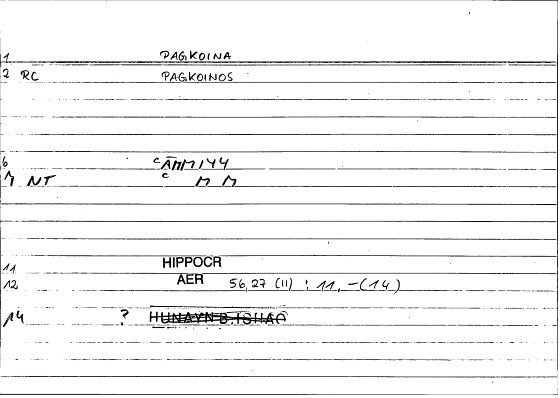 1 PAGKOINA
2 RC PAGKOINOS
6 ʿĀMMIYY
7 NT ʿ M M
11 HIPPOCR
12 AER 56,27 (11) : 11, -(14)
14 ? HUNAYN B. ISHAQ